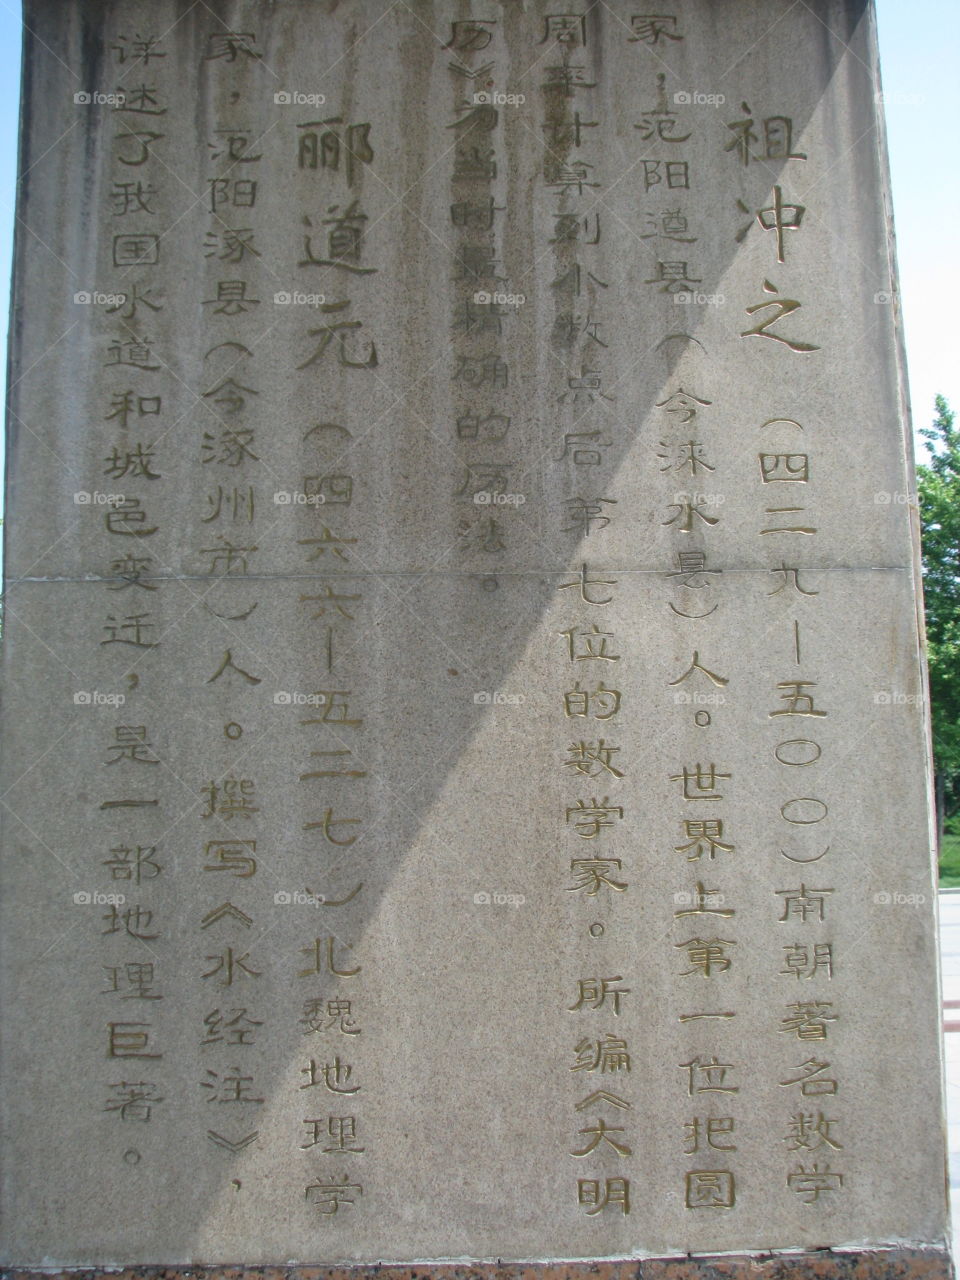 祖冲之（四二九—五〇〇）南朝著名数学
家，范阳遒县（今涞水县）人。世界上第一位把圆
周率计算到小数点后第七位的数学家。所编《大明
历》为当时最精确的历法。
郦道元（四六六—五二七）北魏地理学
家，范阳涿县（今涿州市）人。撰写《水经注》，
详述了我国水道和城邑变迁，是一部地理巨著。